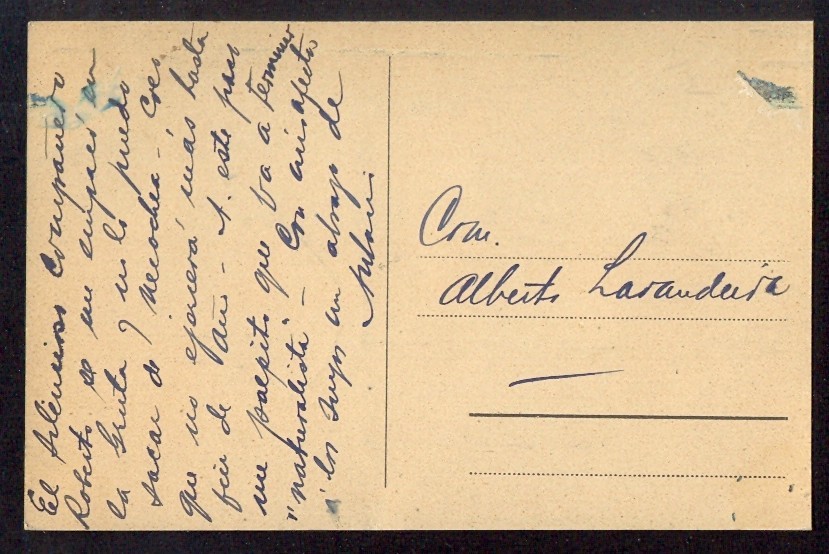 El silencioso compañero
Roberto se me empacó en
la Gruta y no lo puedo
sacar de Necochea - Creo
que no ejercerá más hasta
fin de año - A este paso
me palpito que va a terminar
"naturalista" - Con mis afectos
a los suyos un abrazo de

Com.
Alberto Lavandeira